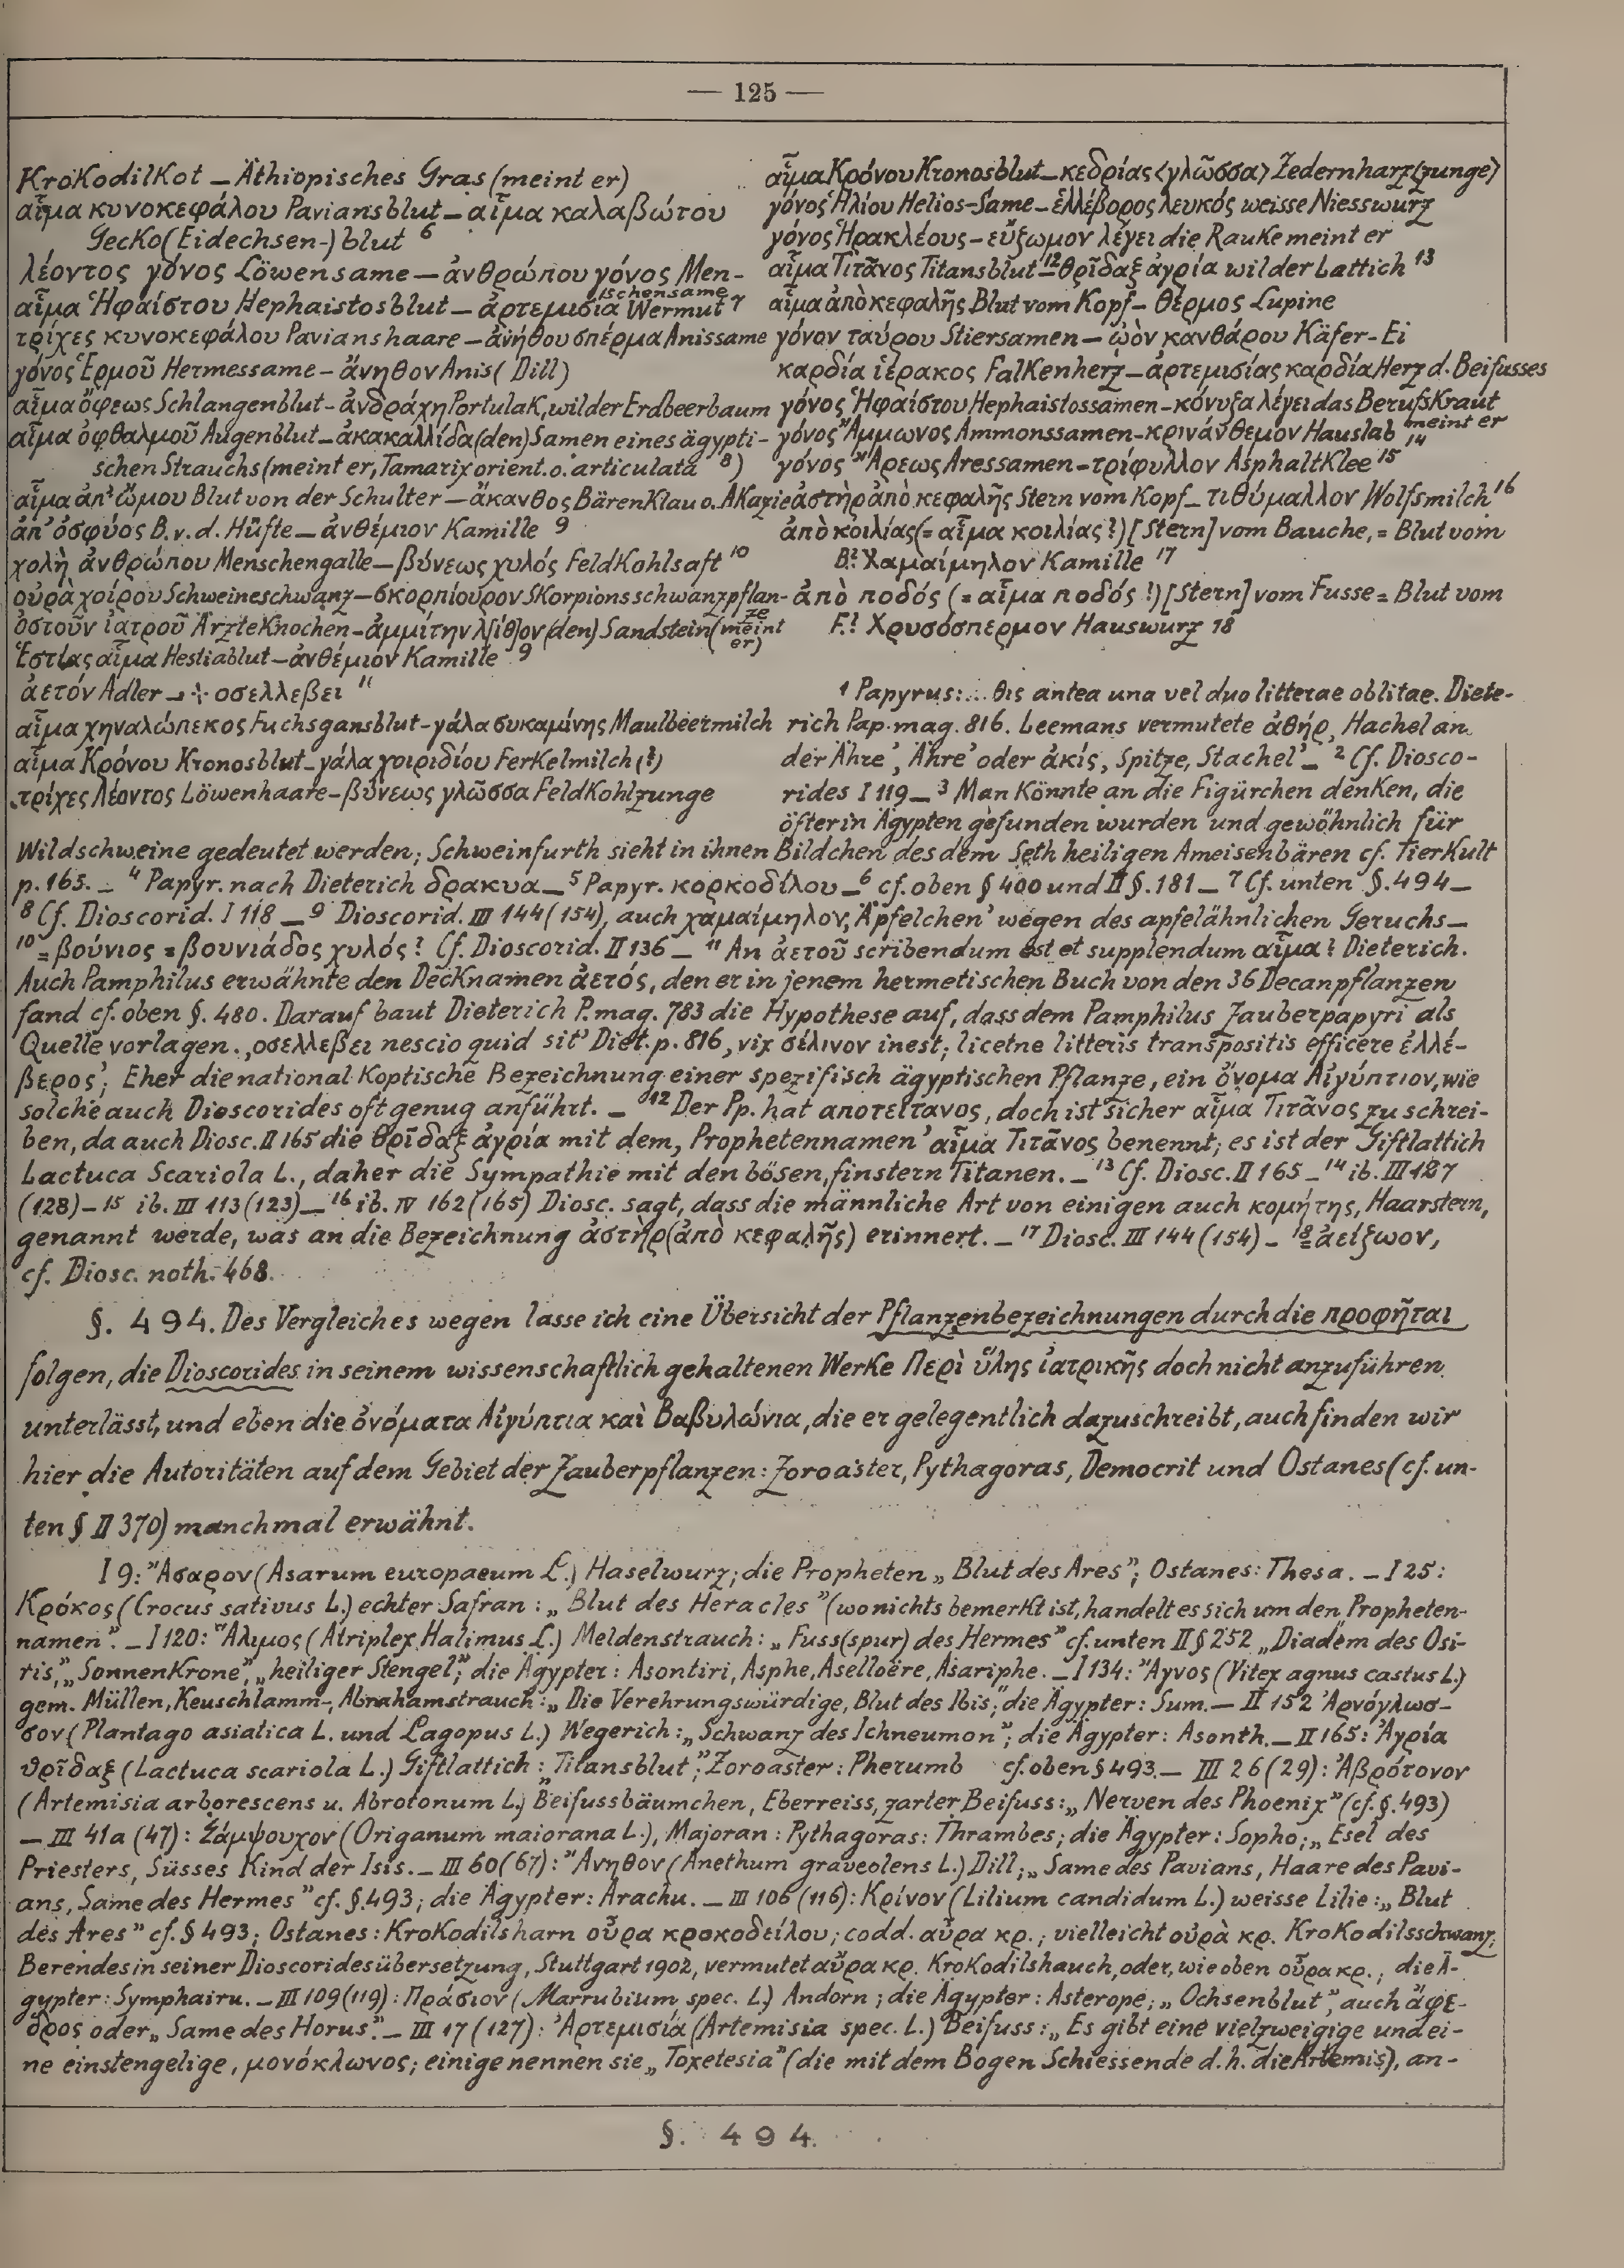 — 125 —
Krokodilkot – Äthiopisches Gras (meint er)
αἷμα κυνοκεφάλου Paviansblut – αἷμα καλαβώτου
Gecko (Eidechsen-) blut 6
λέοντος γόνος Löwensame – ἀνθρώπου γόνος Men-
schensame
αἷμα Ἡφαίστου Hephaistosblut – ἀρτεμισία Wermut 7
τρίχες κυνοκεφάλου Pavianshaare – ἀνήθου σπέρμα Anissame
γόνος Ἑρμοῦ Hermessame – ἄνηθον Anis (Dill)
αἷμα ὄφεως Schlangenblut – ἀνδράχη Portulak, wilder Erdbeerbaum
αἷμα ὀφθαλμοῦ Augenblut – ἀκακαλλίδα (den) Samen eines ägypti-
schen Strauchs (meint er, Tamarix orient. o. articulata 8)
αἷμα ἀπ' ὤμου Blut von der Schulter – ἄκανθος Bärenklau o. Akazie
ἀπ' ὀσφύος B. v. d. Hüfte – ἀνθέμιον Kamille 9
χολὴ ἀνθρώπου Menschengalle – βύνεως χυλός Feldkohlsaft 10
οὐρὰ χοίρου Schweineschwanz – σκορπίουρον Skorpionsschwanzpflan-
ze
ὀστοῦν ἰατροῦ Ärzteknochen – ἀμμίτην λ[ίθ]ον (den) Sandstein (meint
er)
Ἑστίας αἷμα Hestiablut – ἀνθέμιον Kamille 9
ἀετόν Adler – ⊹ οσελλεβει 11
αἷμα χηναλώπεκος Fuchsgansblut – γάλα συκαμίνης Maulbeermilch
αἷμα Κρόνου Kronosblut – γάλα χοιριδίου Ferkelmilch (?)
τρίχες λέοντος Löwenhaare – βύνεως γλῶσσα Feldkohlzunge
αἷμα Κρόνου Kronosblut – κεδρίας <γλῶσσα> Zedernharz (zunge)
γόνος Ἡλίου Helios-Same – ἑλλέβορος λευκός weisse Niesswurz
γόνος Ἡρακλέους – εὔζωμον λέγει die Rauke meint er
αἷμα Τιτᾶνος Titansblut 12 – θρῖδαξ ἀγρία wilder Lattich 13
αἷμα ἀπὸ κεφαλῆς Blut vom Kopf – θέρμος Lupine
γόνον ταύρου Stiersamen – ὠὸν κανθάρου Käfer-Ei
καρδία ἱέρακος Falkenherz – ἀρτεμισίας καρδία Herz d. Beifusses
γόνος Ἡφαίστου Hephaistossamen – κόνυζα λέγει das Berufskraut
meint er
γόνος Ἄμμωνος Ammonssamen – κρινάνθεμον Hauslab 14
γόνος Ἄρεως Aressamen – τρίφυλλον Asphaltklee 15
ἀστὴρ ἀπὸ κεφαλῆς Stern vom Kopf – τιθύμαλλον Wolfsmilch 16
ἀπὸ κοιλίας (= αἷμα κοιλίας?) [Stern] vom Bauche, = Blut vom
B? Χαμαίμηλον Kamille 17
ἀπὸ ποδός (= αἷμα ποδός!) [Stern] vom Fusse = Blut vom
F.? Χρυσόσπερμον Hauswurz 18
1 Papyrus: ... θις antea una vel duo litterae oblitae. Diete-
rich Pap. mag. 816. Leemans vermutete ἀθήρ, Hachel an
der Ähre', Ähre' oder ἀκίς, Spitze, Stachel' – 2 Cf. Diosco-
rides I 119 – 3 Man könnte an die Figürchen denken, die
öfter in Ägypten gefunden wurden und gewöhnlich für
Wildschweine gedeutet werden; Schweinfurth sieht in ihnen Bildchen des dem Seth heiligen Ameisenbären cf. Tierkult
p. 165. – 4 Papyr. nach Dieterich δρακυα – 5 Papyr. κορκοδίλου – 6 cf. oben § 400 und II §. 181 – 7 Cf. unten §. 494 –
8 Cf. Dioscorid. I 118 – 9 Dioscorid. III 144 (154), auch χαμαίμηλον, 'Äpfelchen' wegen des apfelähnlichen Geruchs –
10 = βούνιος = βουνιάδος χυλός? Cf. Dioscorid. II 136 – 11 An ἀετοῦ scribendum est et supplendum αἷμα? Dieterich.
Auch Pamphilus erwähnte den Decknamen ἀετός, den er in jenem hermetischen Buch von den 36 Decanpflanzen
fand cf. oben §. 480. Darauf baut Dieterich P. mag. 783 die Hypothese auf, dass dem Pamphilus Zauberpapyri als
Quelle vorlagen. ,οσελλεβει nescio quid sit' Diet. p. 816, vix σέλινον inest; licetne litteris transpositis efficere ἐλλέ-
βερος'; Eher die national koptische Bezeichnung einer spezifisch ägyptischen Pflanze, ein ὄνομα Αἰγύπτιον, wie
solche auch Dioscorides oft genug anführt. – 12 Der Pp. hat αποτειτανος, doch ist sicher αἷμα Τιτᾶνος zu schrei-
ben, da auch Diosc. II 165 die θρῖδαξ ἀγρία mit dem, Prophetennamen' αἷμα Τιτᾶνος benennt; es ist der Giftlattich
Lactuca Scariola L., daher die Sympathie mit den bösen, finstern Titanen. – 13 Cf. Diosc. II 165 – 14 ib. III 127
(128) – 15 ib. III 113 (123) – 16 ib. IV 162 (165) Diosc. sagt, dass die männliche Art von einigen auch κομήτης, Haarstern,
genannt werde, was an die Bezeichnung ἀστὴρ (ἀπὸ κεφαλῆς) erinnert. – 17 Diosc. III 144 (154) – 18 = ἀείζωον,
cf. Diosc. noth. 468.
§. 494. Des Vergleiches wegen lasse ich eine Übersicht der Pflanzenbezeichnungen durch die προφῆται
folgen, die Dioscorides in seinem wissenschaftlich gehaltenen Werke Περὶ ὕλης ἰατρικῆς doch nicht anzuführen
unterlässt, und eben die ὀνόματα Αἰγύπτια καὶ Βαβυλώνια, die er gelegentlich dazuschreibt, auch finden wir
hier die Autoritäten auf dem Gebiet der Zauberpflanzen: Zoroaster, Pythagoras, Democrit und Ostanes (cf. un-
ten § II 370) manchmal erwähnt.
I 9: Ἄσαρον (Asarum europaeum L.) Haselwurz; die Propheten „Blut des Ares"; Ostanes: Thesa. – I 25:
Κρόκος (Crocus sativus L.) echter Safran: „Blut des Heracles" (wo nichts bemerkt ist, handelt es sich um den „Propheten-
namen". – I 120: Ἅλιμος (Atriplex Halimus L.) Meldenstrauch: „Fuss(spur) des Hermes" cf. unten II § 252 „Diadem des Osi-
ris", „Sonnenkrone", „heiliger Stengel"; die Ägypter: Asontiri, Asphe, Aselloëre, Asariphe. – I 134: Ἄγνος (Vitex agnus castus L.)
gem. Müllen, Keuschlamm-, Abrahamstrauch: „Die Verehrungswürdige, Blut des Ibis"; die Ägypter: Sum. – II 152 Ἀρνόγλωσ-
σον (Plantago asiatica L. und Lagopus L.) Wegerich: „Schwanz des Ichneumon"; die Ägypter: Asonth. – II 165: Ἀγρία
θρῖδαξ (Lactuca scariola L.) Giftlattich: „Titansblut"; Zoroaster: Pherumb cf. oben § 493. – III 26 (29): Ἀβρότονον
(Artemisia arborescens u. Abrotonum L.) Beifussbäumchen, Eberreiss, zarter Beifuss: „Nerven des Phoenix" (cf. §. 493)
– III 41a (47): Σάμψουχον (Origanum maiorana L.), Majoran: Pythagoras: Thrambes; die Ägypter: Sopho; „Esel des
Priesters, Süsses Kind der Isis. – III 60 (67): Ἄνηθον (Anethum graveolens L.) Dill; „Same des Pavians, Haare des Pavi-
ans, Same des Hermes" cf. §. 493; die Ägypter: Arachu. – III 106 (116): Κρίνον (Lilium candidum L.) weisse Lilie: „Blut
des Ares" cf. § 493; Ostanes: Krokodilsharn οὖρα κροκοδείλου; codd. αὖρα κρ.; vielleicht οὐρὰ κρ. Krokodilsschwanz;
Berendes in seiner Dioscoridesübersetzung, Stuttgart 1902, vermutet αὔρα κρ. Krokodilshauch, oder, wie oben οὖρα κρ.; die Ä-
gypter: Symphairu. – III 109 (119): Πράσιον (Marrubium spec. L.) Andorn; die Ägypter: Asterope; „Ochsenblut", auch ἄφε-
δρος oder „Same des Horus". – III 17 (127): Ἀρτεμισία (Artemisia spec. L.) Beifuss: „Es gibt eine vielzweigige und ei-
ne einstengelige, μονόκλωνος; einige nennen sie „Toxetesia" (die mit dem Bogen Schiessende d. h. die Artemis), an-
§. 494.